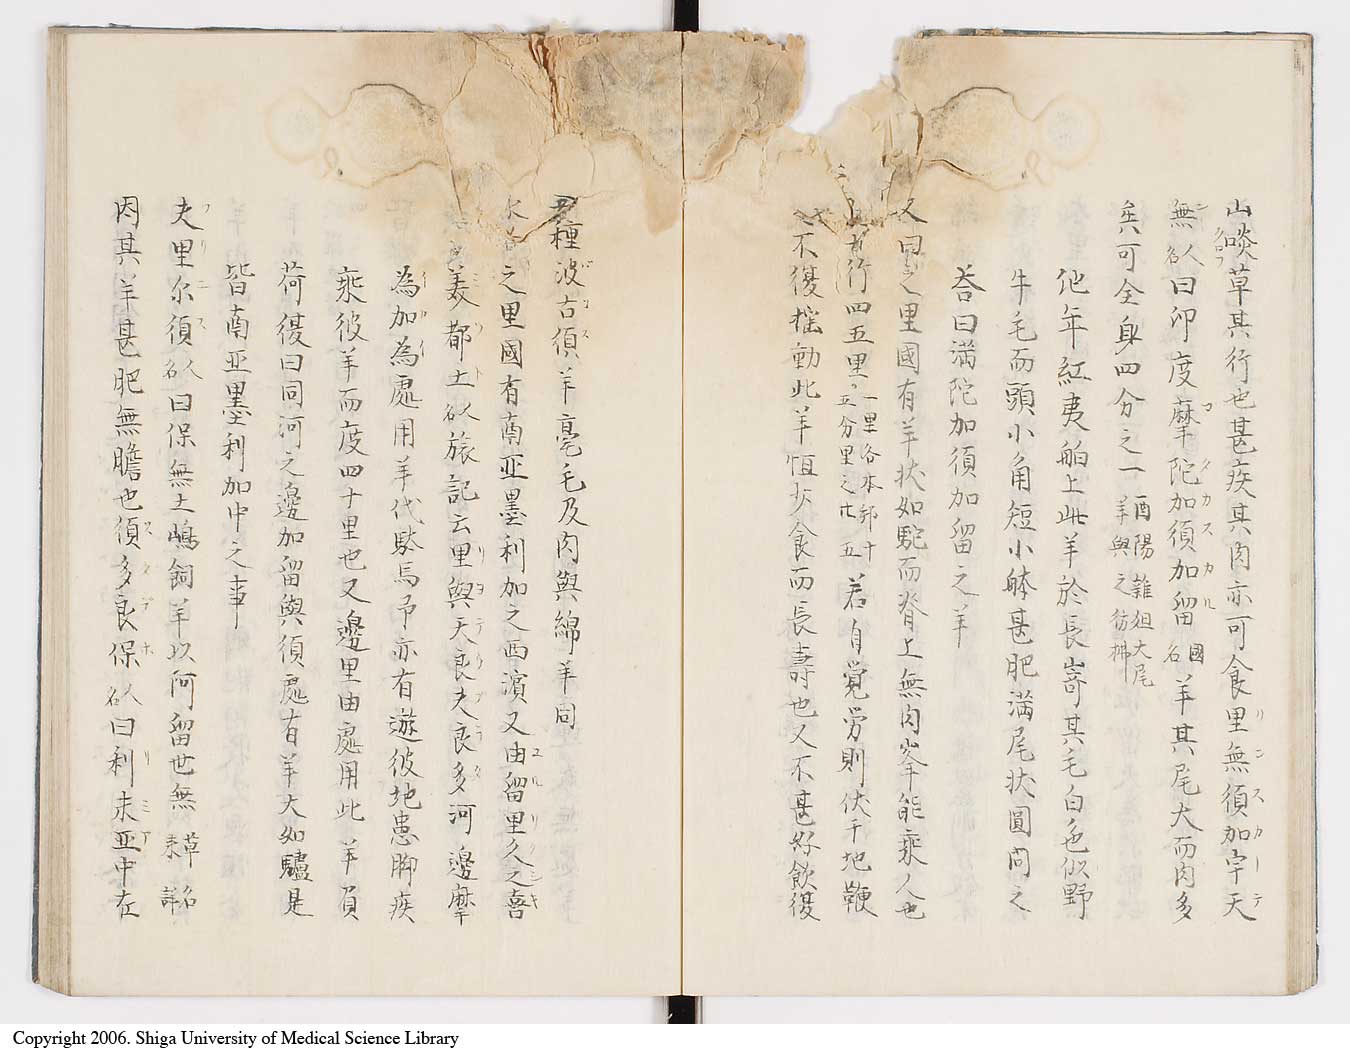 山啖草其行也甚疾其肉亦可食里無須加宇天
無人名曰印度摩陀加須加留國名羊其尾大而肉多
矣可全身四分之一酉陽雜俎大尾羊與之彷彿
他年紅夷舶上此羊於長崎其毛白色似野
牛毛而頭小角短小体甚肥満尾状圓問之
荅曰満陀加須加留之羊
又曰里國有羊状如駝而脊上無肉峯能乗人也
行四五里一里各本邦十五分里之廿五若自覚労則伏于地鞭
不復揺動此羊恒少食而長壽也又不甚好飲復
種波古須羊毫毛及肉與綿羊同
之里國有南亜墨利加之西濱又由留里久之喜
美都土人名旅記云里與天良夫良多河邊摩
為加為處用羊代駄馬予亦有遊彼地患脚疾
乗彼羊而度四十里也又邊里由處用此羊負
荷復曰同河之邊加留與須處有羊大如驢是
皆南亜墨利加中之事
夫里尓須人名曰保無土嶋飼羊以阿留世無草名未詳
因其羊甚肥無膽也須多良保人名曰利未亜中在
Copyright 2006. Shiga University of Medical Science Library